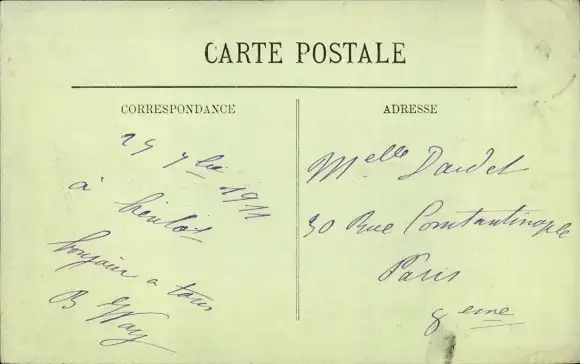 CARTE POSTALE
CORRESPONDANCE
29 7bre 1911
à bientôt
bonjour a tous
B
ADRESSE
Melle
30 Rue Constantinople
Paris
8eme